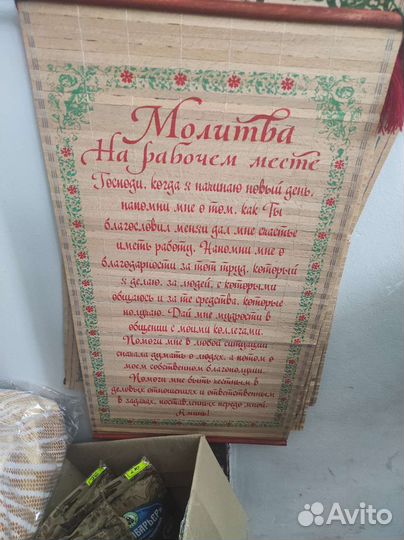 Молитва
На рабочем месте
Господи, когда я начинаю новый день,
напомни мне о том, как Ты
благословил меня и дал мне счастье
иметь работу. Напомни мне о
благодарности за тот труд, который
я делаю, за людей, с которыми
общаюсь и за те средства, которые
получаю. Дай мне мудрости в
общении с моими коллегами.
Помоги мне в любой ситуации
сначала думать о людях, а потом о
моем собственном благополучии.
Помоги мне быть честным в
деловых отношениях и ответственном
в задачах, поставленных передо мной.
Аминь!
БАРЬЕР
Avito